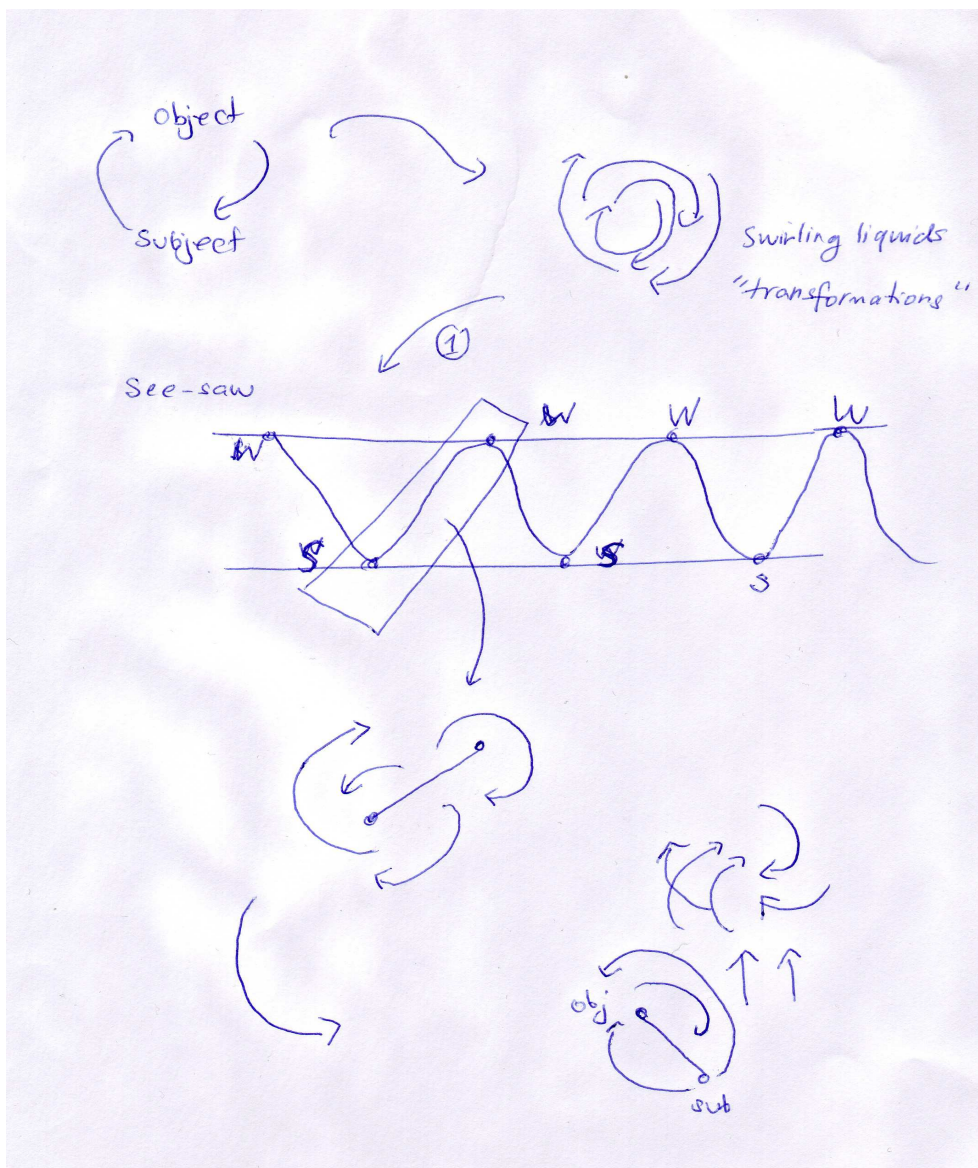 Object
Subject
Swirling liquids
"transformations"
1
See-saw
W
W
W
W
S
S
S
obj
sub